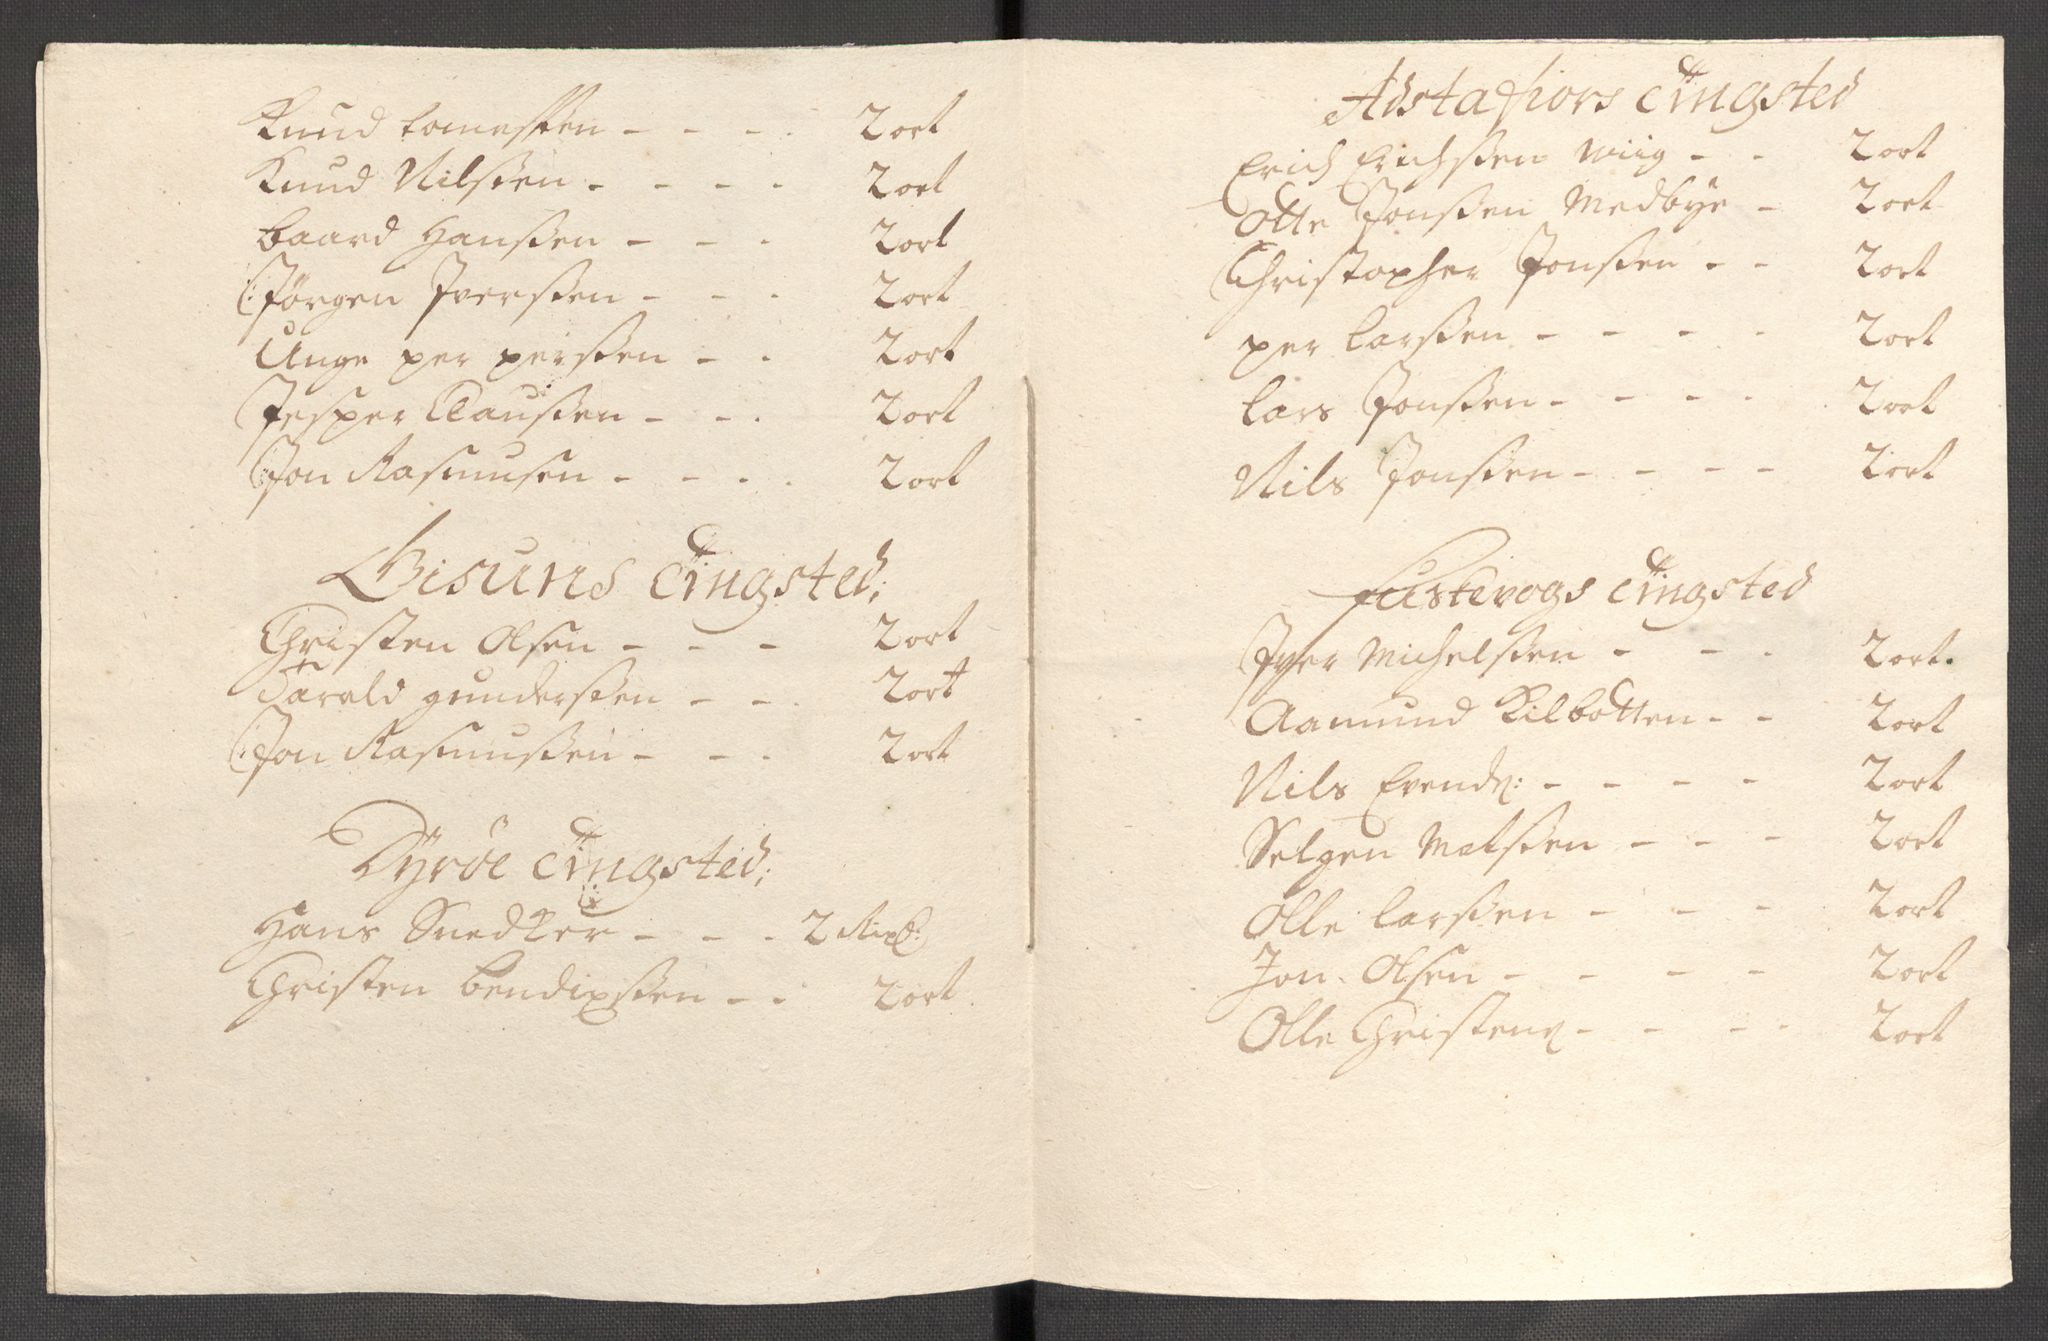 Knud tomessen - - - - 2 ort
Knud Nilssen - - - - 2 ort
baard Hanssen - - - 2 ort
Jörgen Iverssen - - - 2 ort
Unge per perssen - - 2 ort
Jesper Claussen - - - 2 ort
Jon Rasmusen - - - - 2 ort
Gisuns Tingsted;
Christen Olsen - - - 2 ort
Tarald gunderssen - - - 2 ort
Jon Rasmussen - - - 2 ort
Dÿröe Tingsted;
Hans Snedker - - - 2
Christen bendixssen - - 2 ort
Astafiors Tingsted
Erich Erichssen Wiig - - 2 ort
Otte Jonssen Medbÿe - 2 ort
Christopher Jonssen - - 2 ort
per larssen - - - - 2 ort
lars Jonssen - - - - 2 ort
Nils Jonssen - - - - 2 ort
Fustevogs Tingsted
Iver Michelssen - - - 2 ort.
Aamund Kilbotten - - 2 ort
Nils Evends: - - - - 2 ort
Selgen Matssen - - - 2 ort
Olle larssen - - - 2 ort
Jon Olsen - - - - 2 ort
Olle Christens - - - - 2 ort